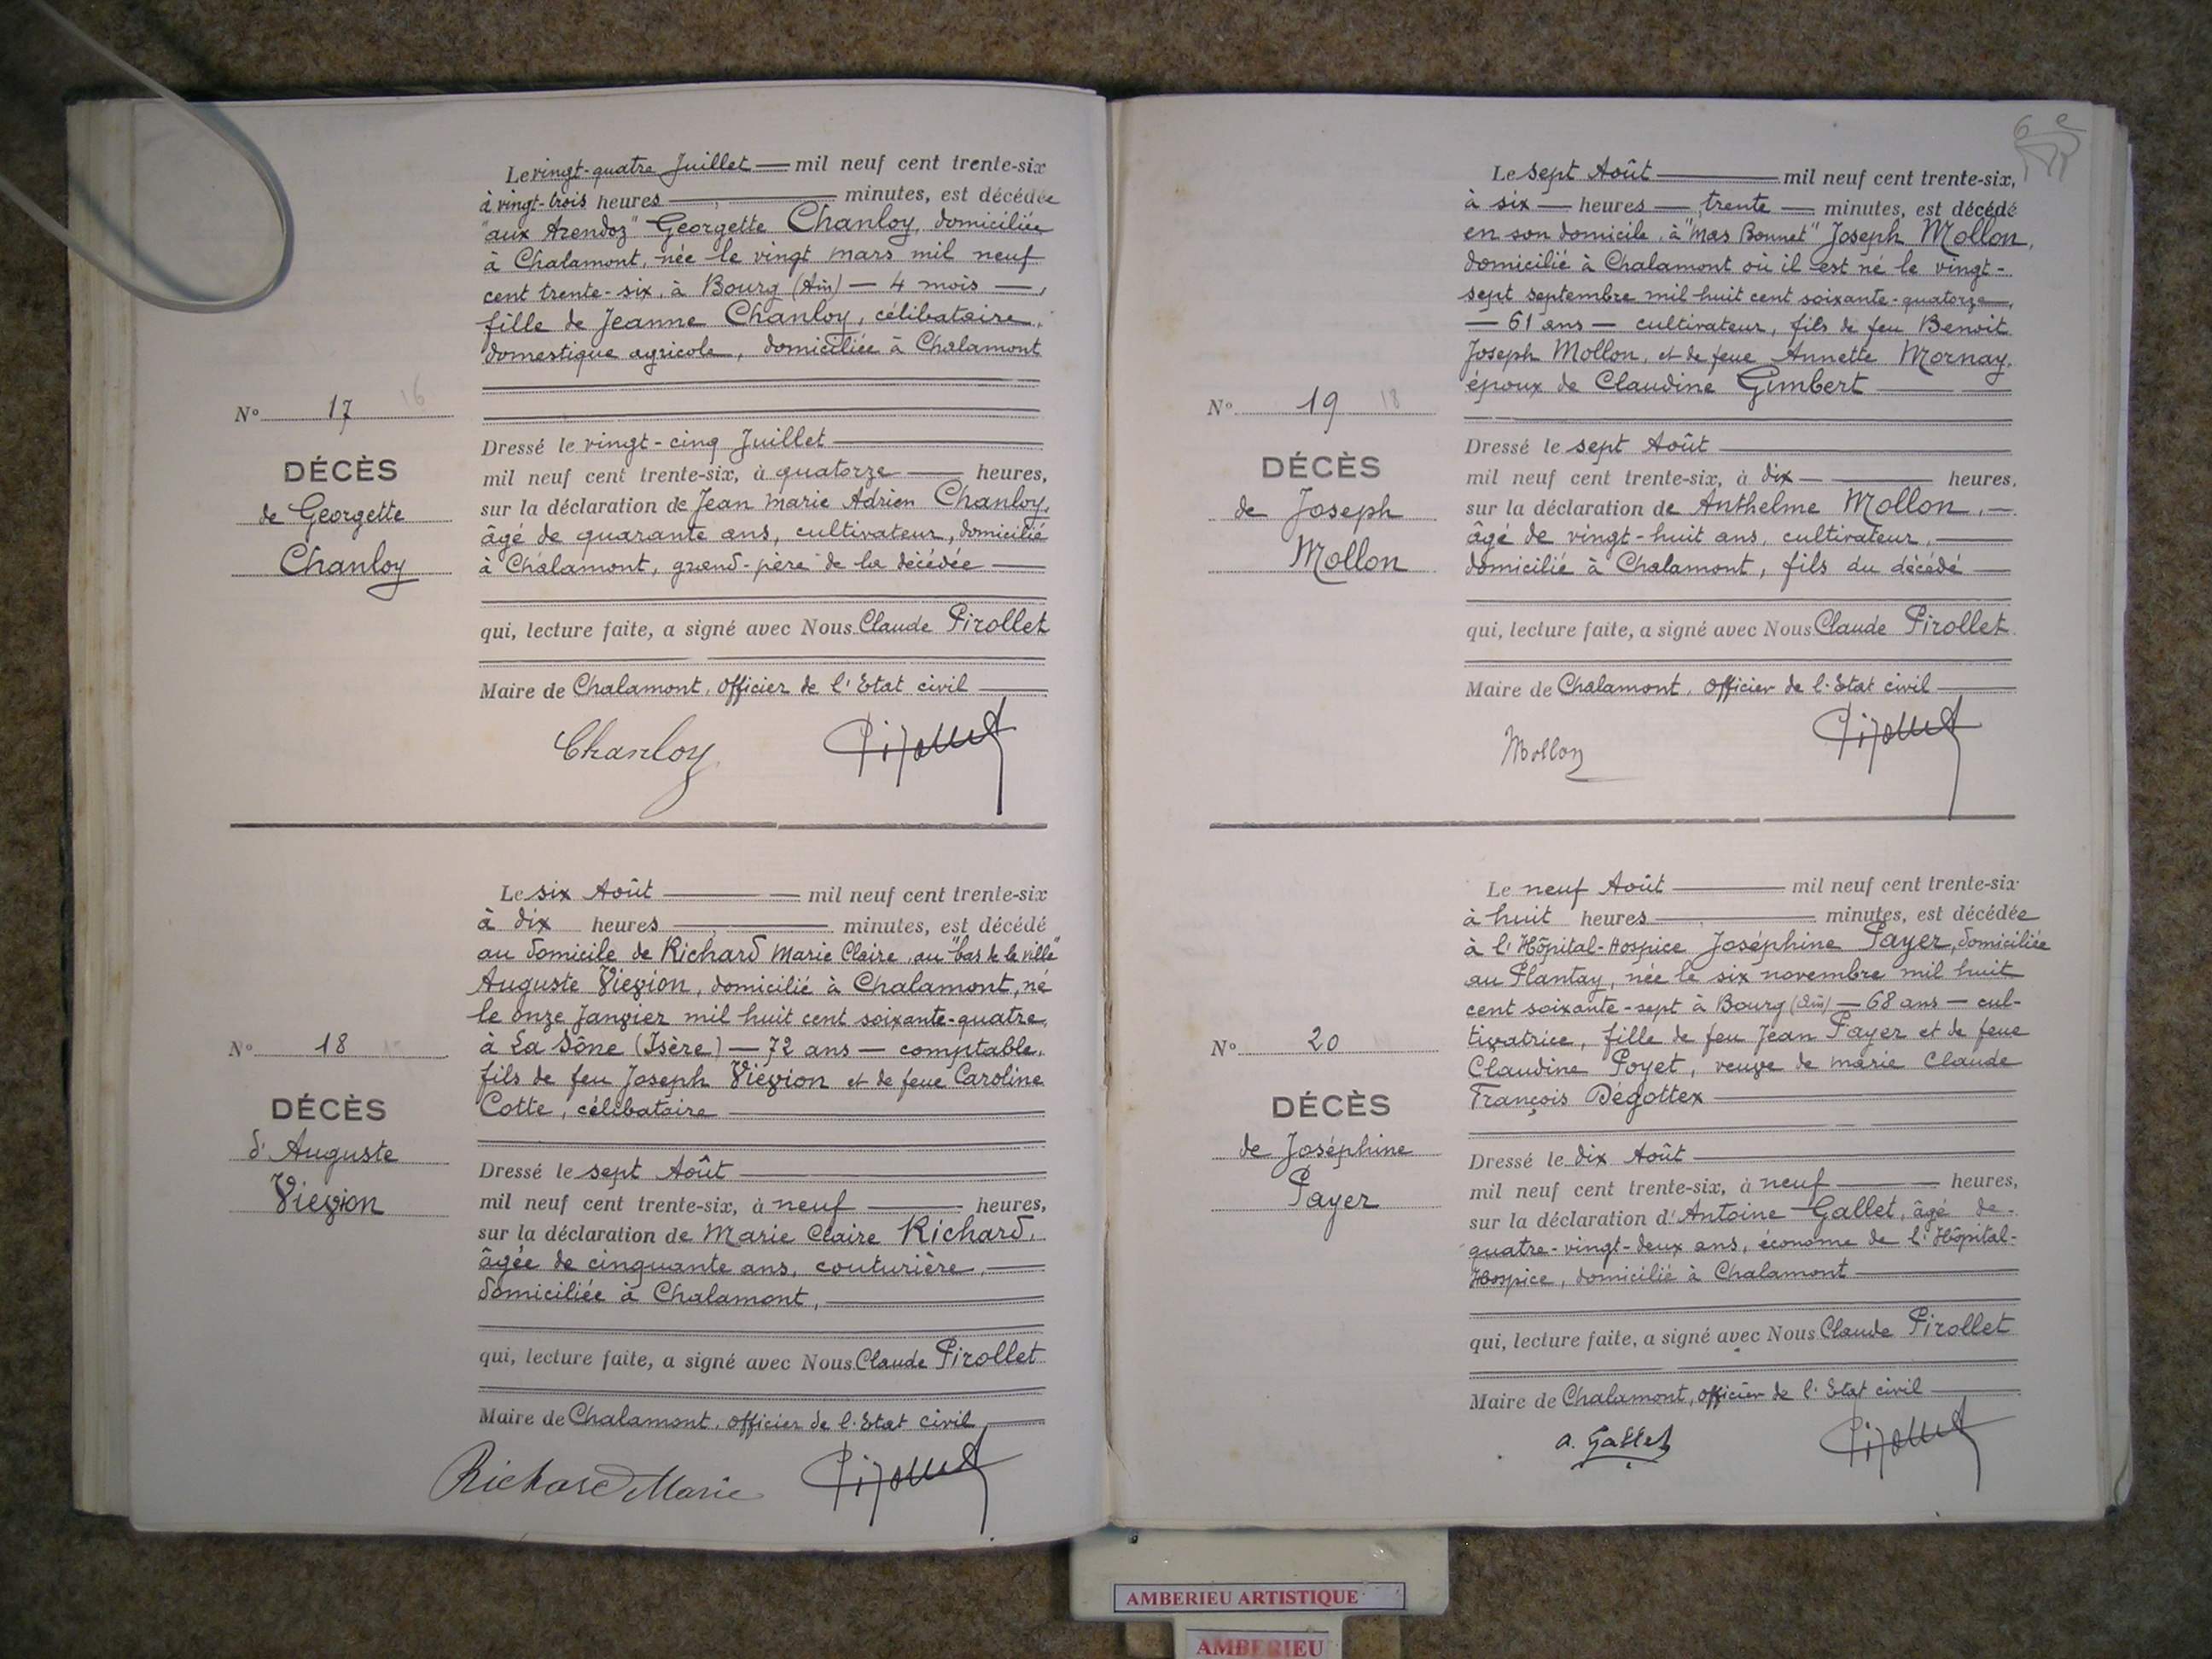 Le vingt-quatre Juillet — mil neuf cent trente-six
à vingt-trois heures — minutes, est décédée
"aux Arendoz" Georgette Chanloy, domiciliée
à Chalamont, née le vingt mars mil neuf
cent trente-six, à Bourg (Ain) — 4 mois —,
fille de Jeanne Chanloy, célibataire,
domestique agricole, domiciliée à Chalamont
N° 17 16
DÉCÈS
de Georgette
Chanloy
Dressé le vingt-cinq Juillet
mil neuf cent trente-six, à quatorze — heures,
sur la déclaration de Jean Marie Adrien Chanloy,
âgé de quarante ans, cultivateur, domicilié
à Chalamont, grand-père de la décédée —
qui, lecture faite, a signé avec Nous Claude Pirollet
Maire de Chalamont, Officier de l'Etat civil —
Chanloy Pirollet
Le six Août — mil neuf cent trente-six
à dix heures — minutes, est décédé
au domicile de Richard Marie Claire, au "bas de la ville"
Auguste Viévion, domicilié à Chalamont, né
le onze Janvier mil huit cent soixante-quatre,
à La Sône (Isère) — 72 ans — comptable,
fils de feu Joseph Viévion et de feue Caroline
Cotte, célibataire —
N° 18
DÉCÈS
d'Auguste
Viévion
Dressé le sept Août
mil neuf cent trente-six, à neuf — heures,
sur la déclaration de Marie Claire Richard,
âgée de cinquante ans, couturière, —
domiciliée à Chalamont, —
qui, lecture faite, a signé avec Nous Claude Pirollet
Maire de Chalamont, Officier de l'Etat civil —
Richard Marie Pirollet
6e
Le sept Août — mil neuf cent trente-six,
à six — heures — trente — minutes, est décédé
en son domicile, à "Mas Bonnet" Joseph Mollon,
domicilié à Chalamont où il est né le vingt-
sept septembre mil huit cent soixante-quatorze,
— 61 ans — cultivateur, fils de feu Benoit
Joseph Mollon, et de feue Annette Mornay,
époux de Claudine Gimbert —
N° 19 18
DÉCÈS
de Joseph
Mollon
Dressé le sept Août
mil neuf cent trente-six, à dix — heures,
sur la déclaration de Anthelme Mollon, —
âgé de vingt-huit ans, cultivateur, —
domicilié à Chalamont, fils du décédé —
qui, lecture faite, a signé avec Nous Claude Pirollet
Maire de Chalamont, Officier de l'Etat civil —
Mollon Pirollet
Le neuf Août — mil neuf cent trente-six
à huit heures — minutes, est décédée
à l'Hôpital-Hospice Joséphine Payer, domiciliée
au Plantay, née le six novembre mil huit
cent soixante-sept à Bourg (Ain) — 68 ans — cul-
tivatrice, fille de feu Jean Payer et de feue
Claudine Poyet, veuve de Marie Claude
François Dégottex —
N° 20
DÉCÈS
de Joséphine
Payer
Dressé le dix Août
mil neuf cent trente-six, à neuf — heures,
sur la déclaration d'Antoine Gallet, âgé de
quatre-vingt-deux ans, économe de l'Hôpital-
Hospice, domicilié à Chalamont —
qui, lecture faite, a signé avec Nous Claude Pirollet
Maire de Chalamont, Officier de l'Etat civil —
A. Gallet Pirollet
AMBERIEU ARTISTIQUE
AMBERIEU